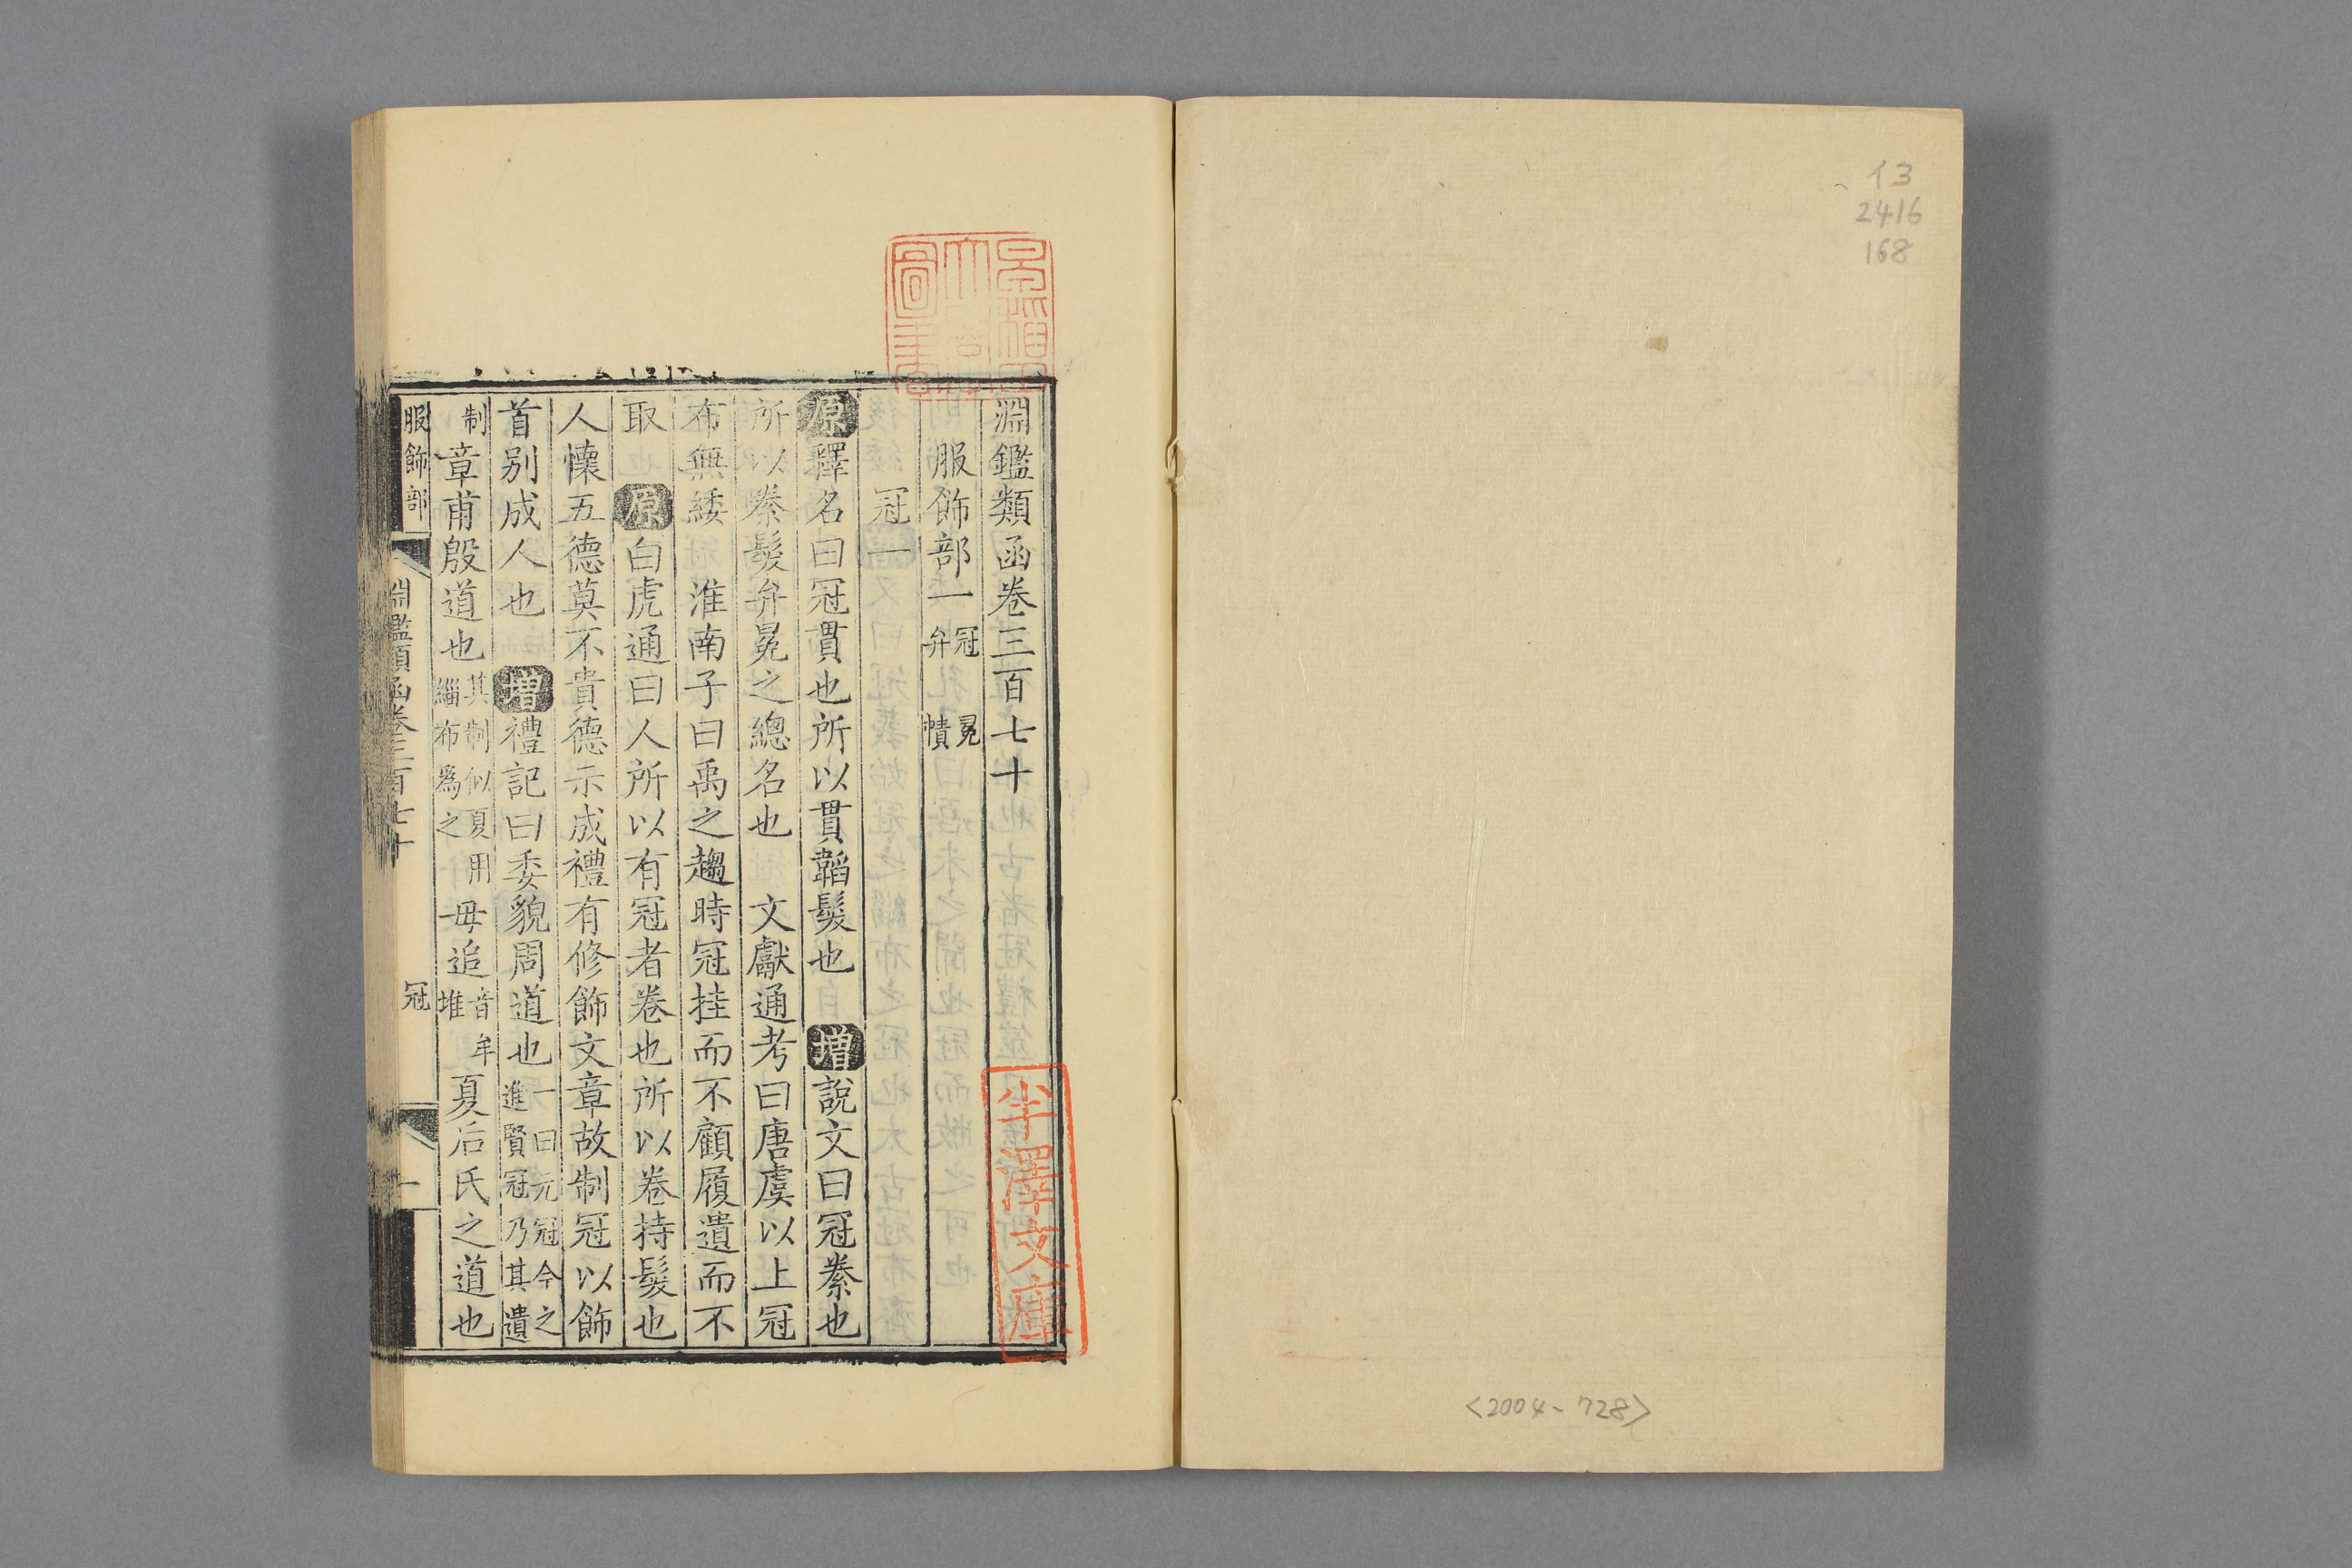 イ3
2416
168
<2004-728>
淵鑑類函卷三百七十
服飾部一 冠 冕 弁 幘
冠一
原釋名曰冠貫也所以貫韜髮也 增說文曰冠絭也
所以絭髮弁冕之總名也 文獻通考曰唐虞以上冠
布無緌 淮南子曰禹之趨時冠挂而不顧履遺而不
取 原白虎通曰人所以有冠者卷也所以卷持髮也
人懷五德莫不貴德示成禮有修飾文章故制冠以飾
首別成人也 增禮記曰委貌周道也一曰元冠今之進賢冠乃其遺
制章甫殷道也其制似夏用緇布爲之毋追音牟堆夏后氏之道也
服飾部
淵鑑類函卷三百七十
冠
一
半澤文庫